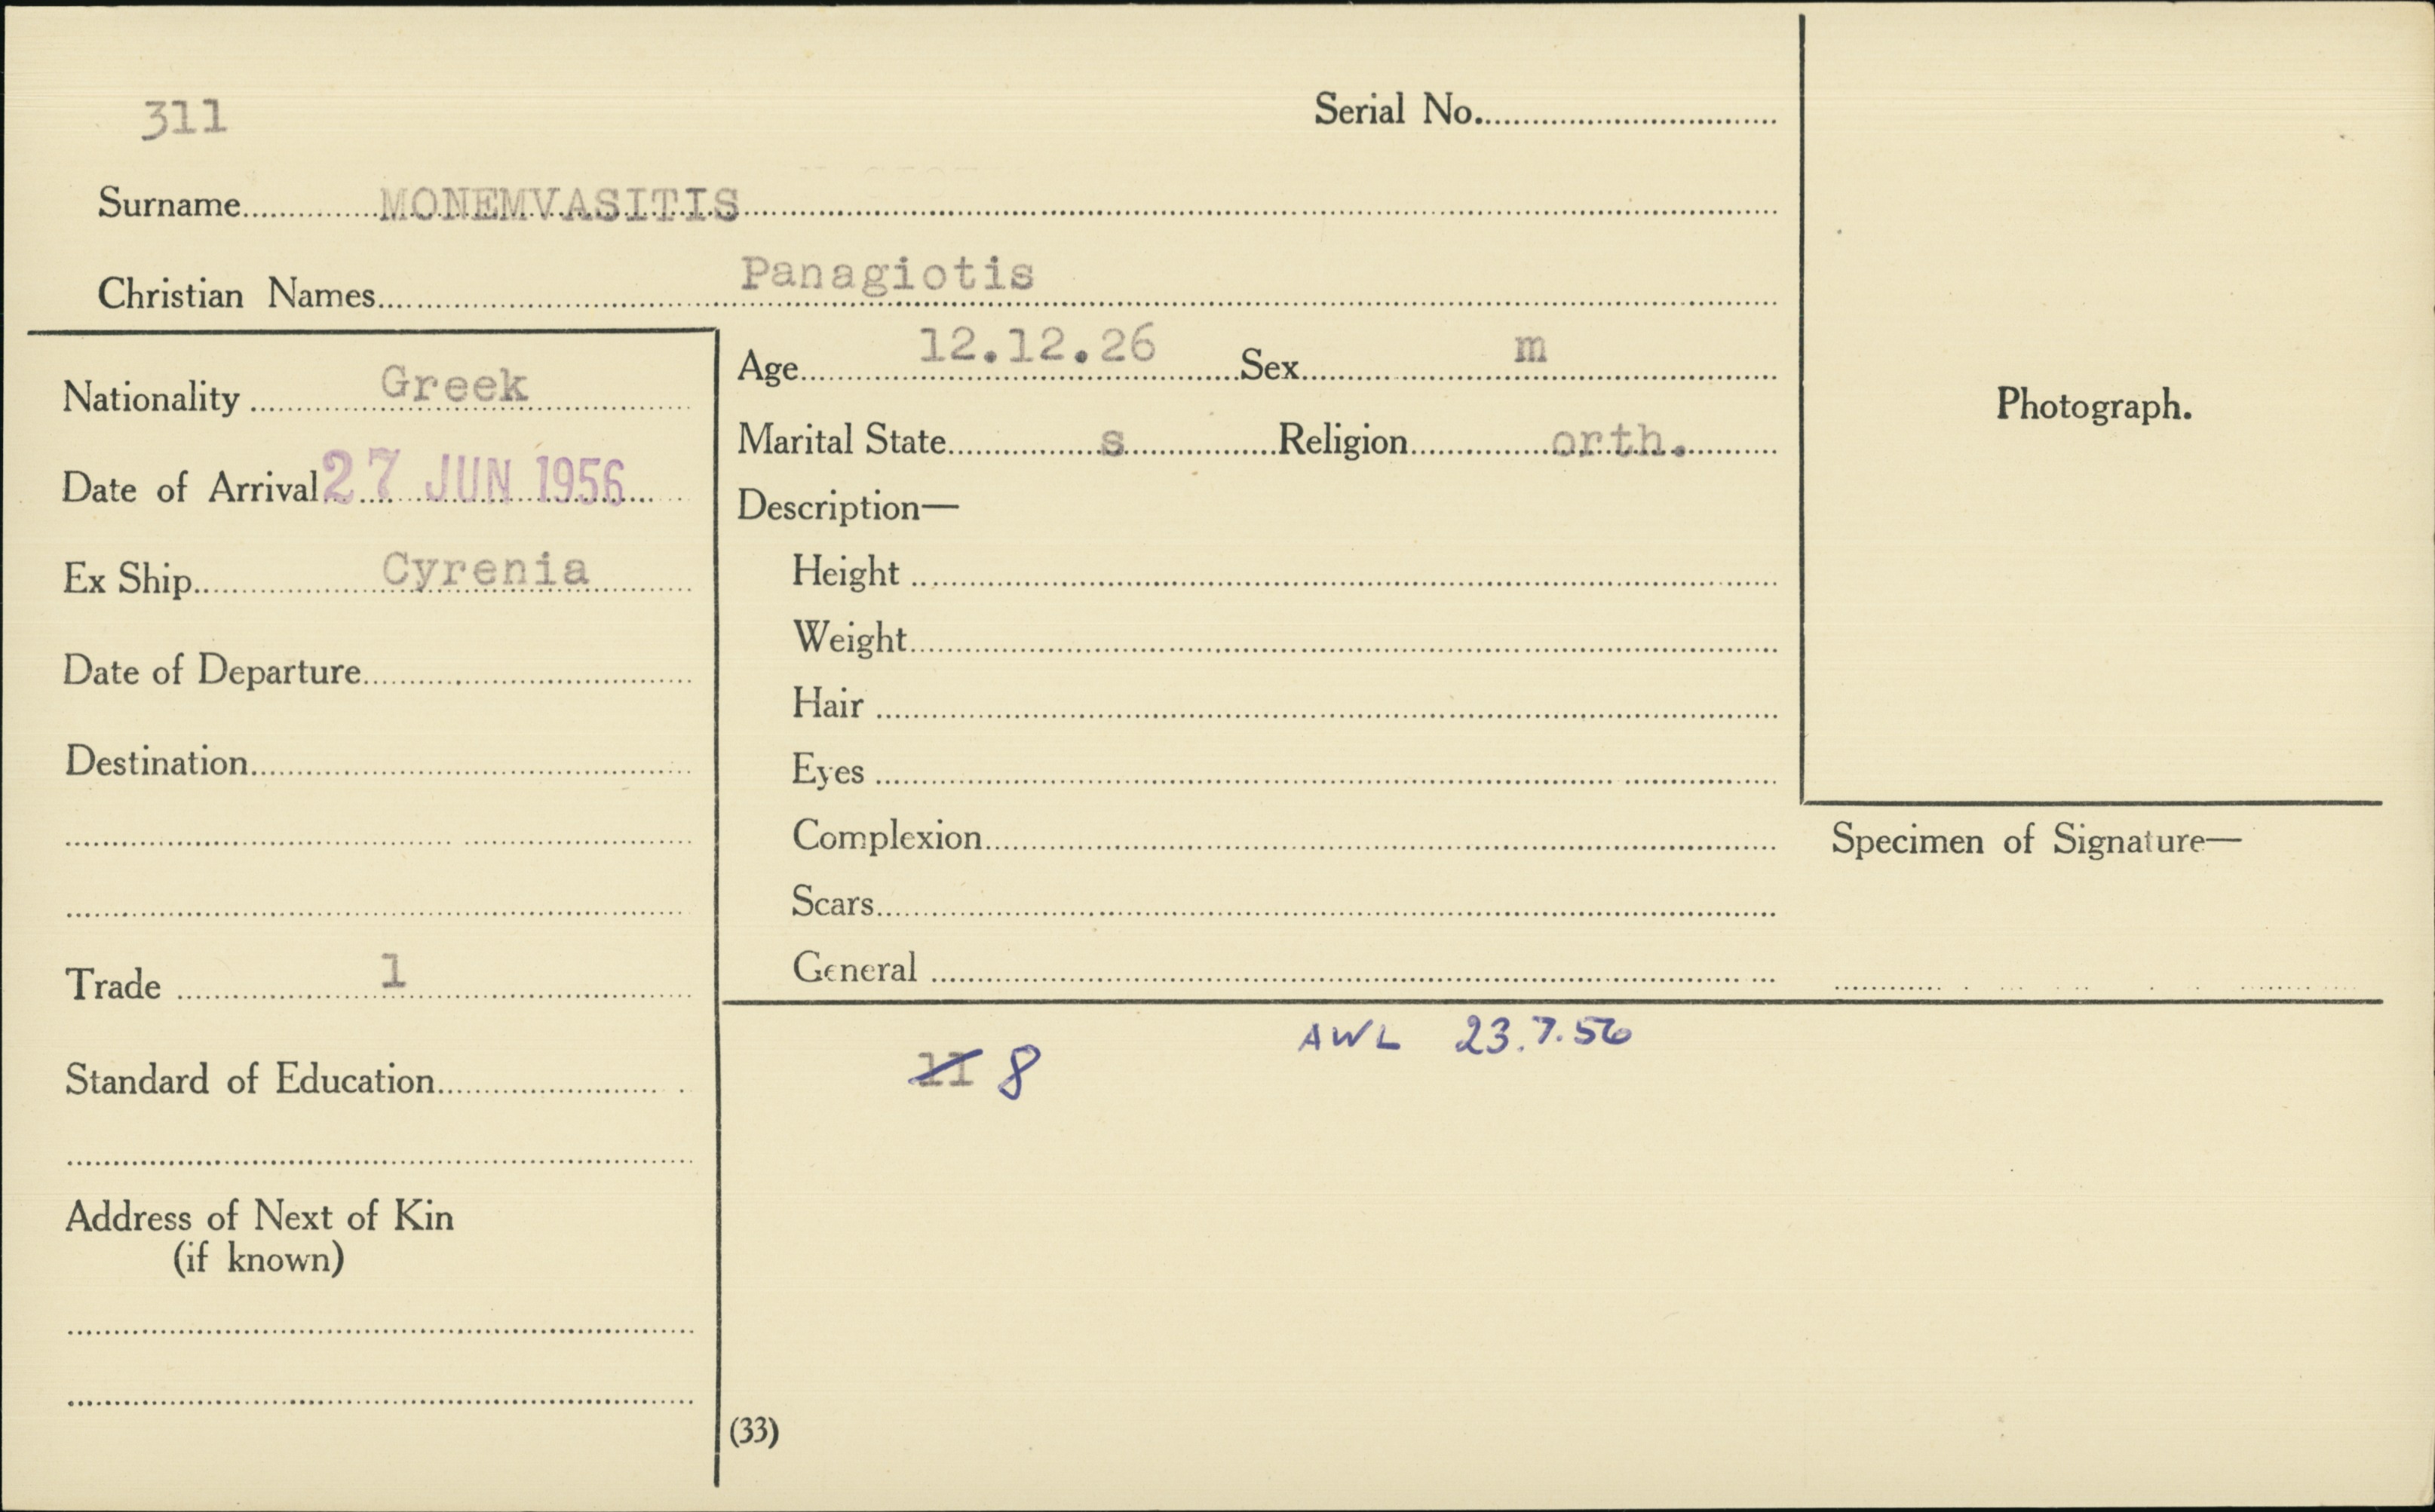 311
Serial No.
Surname MONEMVASITIS
Christian Names Panagiotis
Nationality Greek
Date of Arrival 27 JUN 1956
Ex Ship Cyrenia
Date of Departure
Destination
Trade 1
Standard of Education
Address of Next of Kin
(if known)
Age 12.12.26 Sex m
Marital State s Religion orth.
Description—
Height
Weight
Hair
Eyes
Complexion
Scars
General
Photograph.
Specimen of Signature—
AWL 23.7.56
11 8
(33)